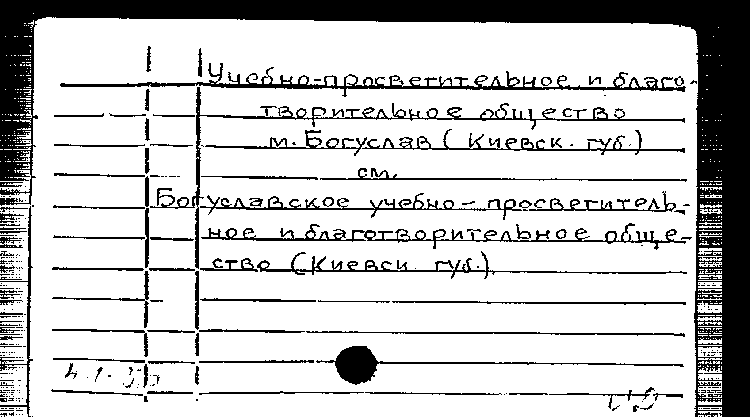 Учебно-просветительное и благо-
творительное общество
м. Богуслав (Киевск. губ.)
см.
Богуславское учебно-просветитель-
ное и благотворительное обще-
ство (Киевск. губ.)